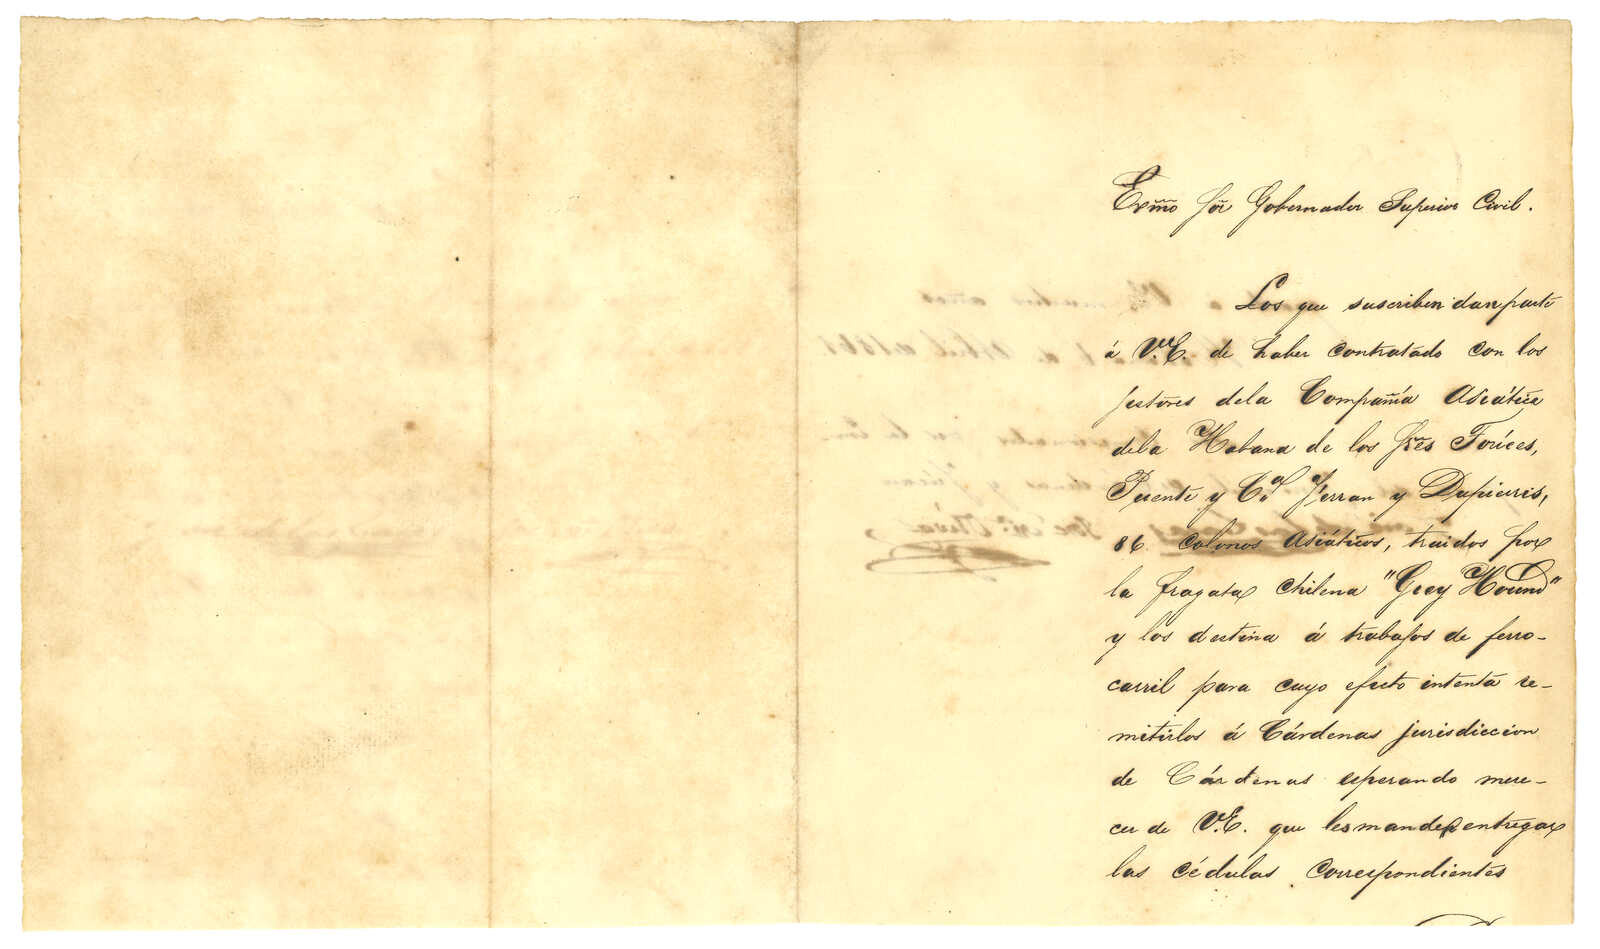 Exmo Sor Gobernador Superior Civil.
Los que suscriben dan parte
á V.E. de haber contratado con los
gestores dela Compañía Asiática
dela Habana de los Sres Torices,
Puente y Ca Ferran y Dupierris,
86 colonos Asiáticos, traidos por
la fragata chilena "Grey Hound"
y los destina á trabajos de ferro-
carril para cuyo efecto intenta re-
mitirlos á Cárdenas jurisdiccion
de Cárdenas esperando mere-
cer de V.E. que les mande entregar
las cédulas correspondientes